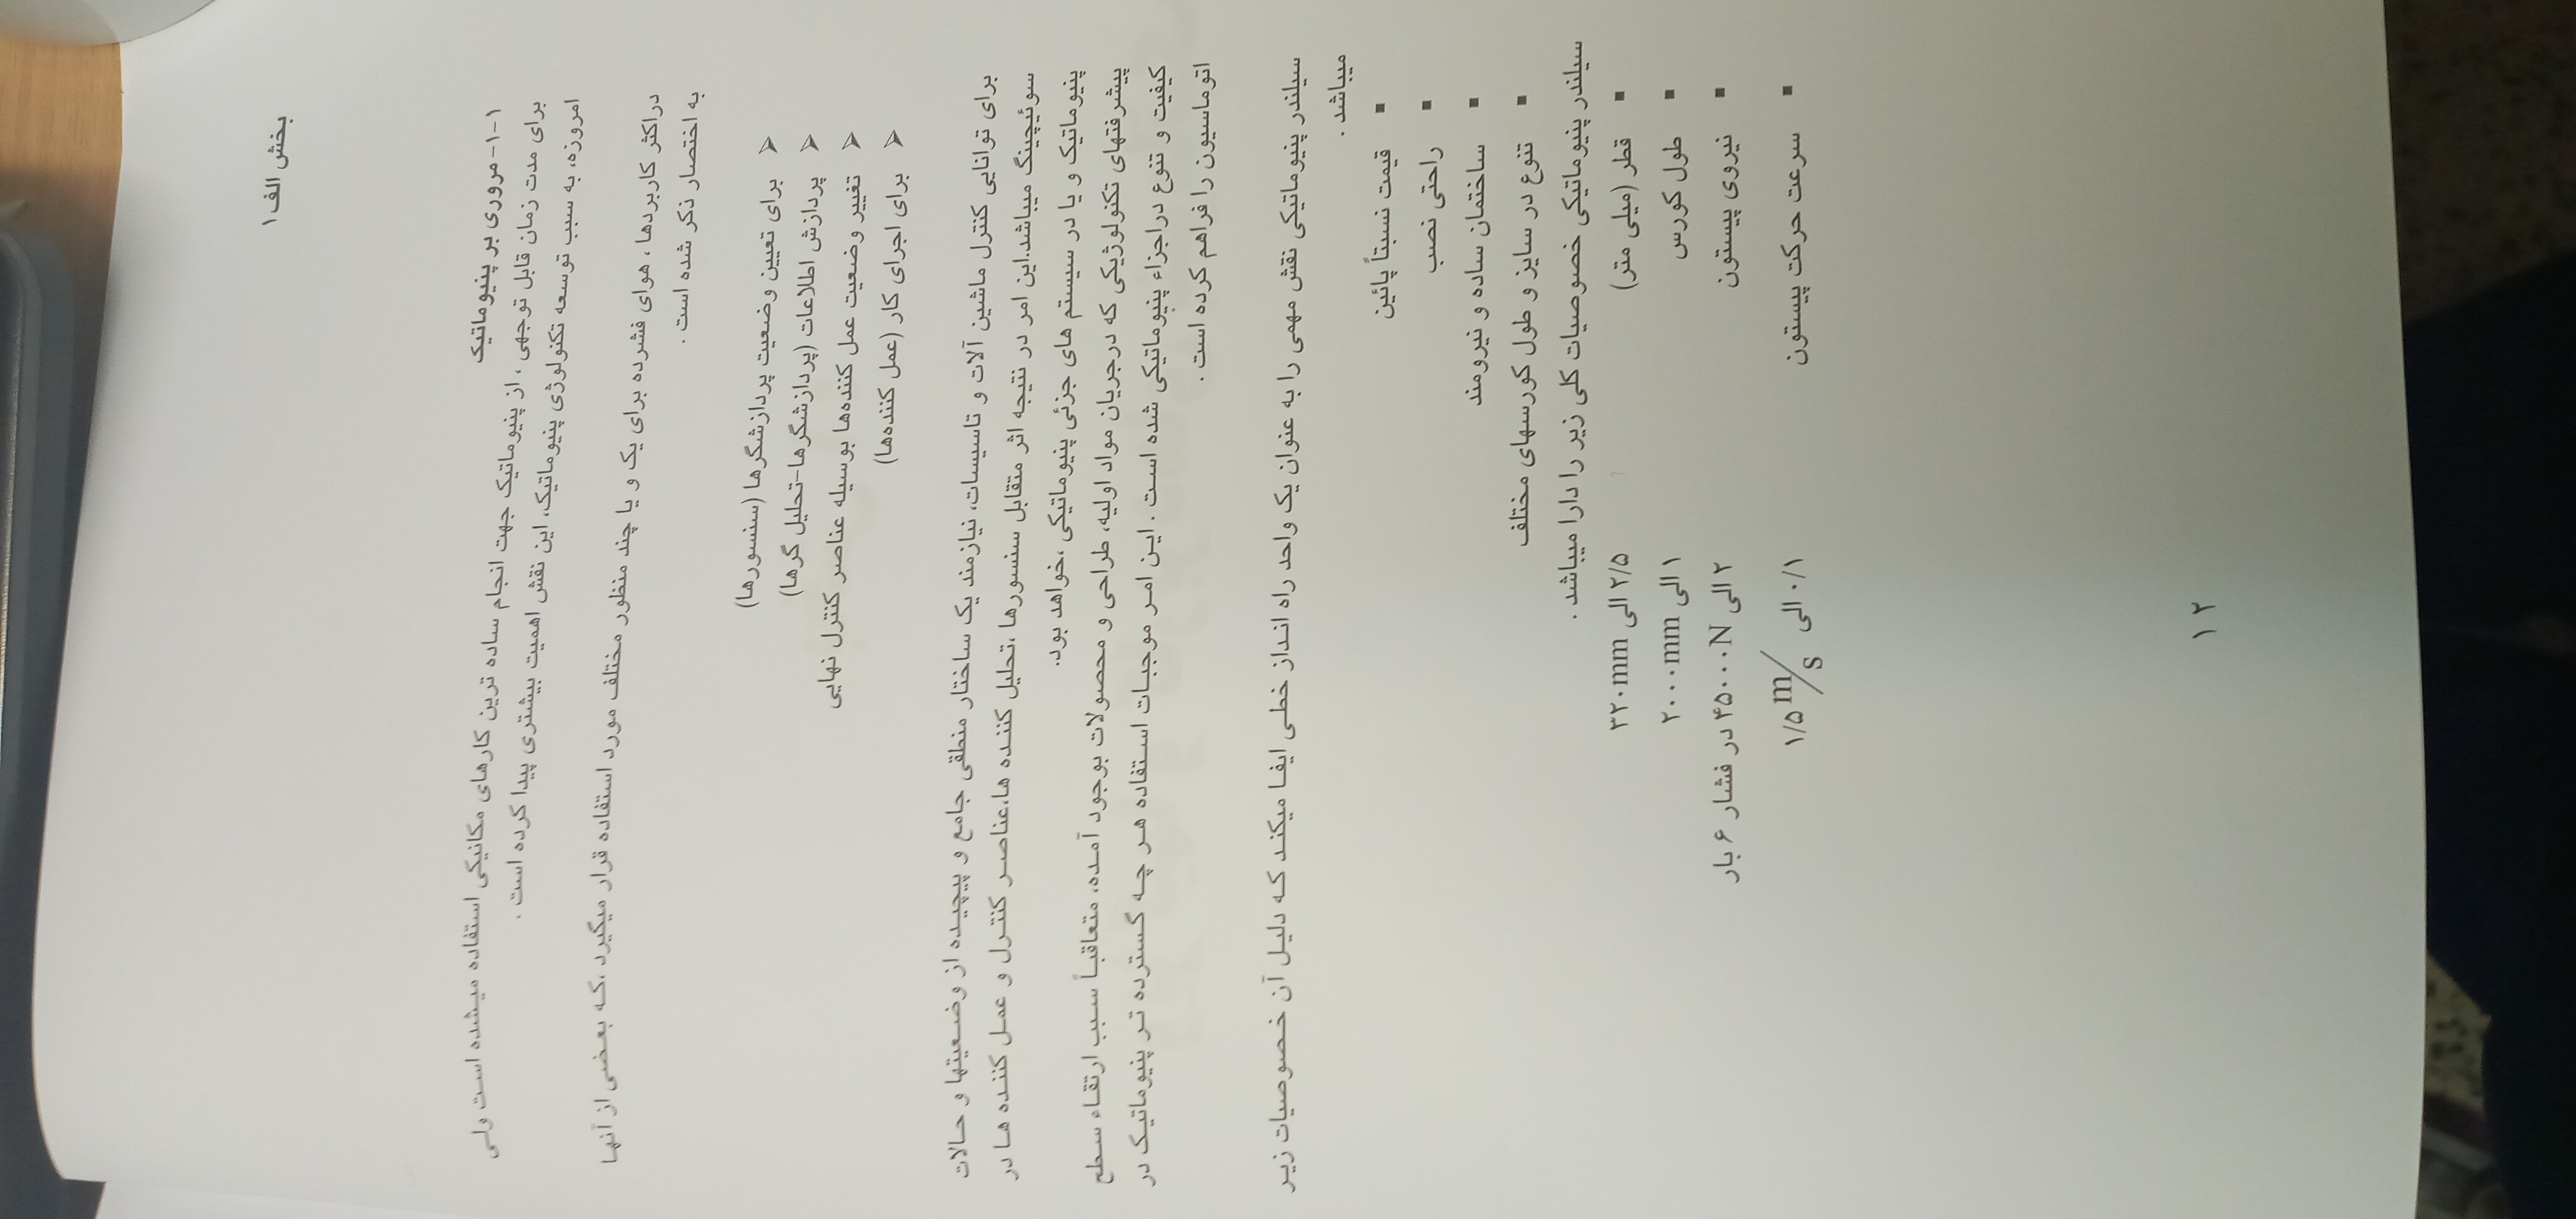 بخش الف ۱
۱-۱- مروری بر پنیوماتیک
برای مدت زمان قابل توجهی ، از پنیوماتیک جهت انجام ساده ترین کارهای مکانیکی استفاده میشده است ولی
امروزه، به سبب توسعه تکنولوژی پنیوماتیک، این نقش اهمیت بیشتری پیدا کرده است .
دراکثر کاربردها ، هوای فشرده برای یک و یا چند منظور مختلف مورد استفاده قرار میگیرد ،که بعضی از آنها
به اختصار ذکر شده است .
➢ برای تعیین وضعیت پردازشگرها (سنسورها)
➢ پردازش اطلاعات (پردازشگرها-تحلیل گرها)
➢ تغییر وضعیت عمل کننده‌ها بوسیله عناصر کنترل نهایی
➢ برای اجرای کار (عمل کننده‌ها)
برای توانایی کنترل ماشین آلات و تاسیسات، نیازمند یک ساختار منطقی جامع و پیچیده از وضعیتها و حالات
سوئیچینگ میباشد.این امر در نتیجه اثر متقابل سنسورها ،تحلیل کننده ها،عناصر کنترل و عمل کننده ها در
پنیوماتیک و یا در سیستم های جزئی پنیوماتیکی ،خواهد بود.
پیشرفتهای تکنولوژیکی که درجریان مواد اولیه، طراحی و محصولات بوجود آمده، متعاقباً سبب ارتقاء سطح
کیفیت و تنوع دراجزاء پنیوماتیکی شده است . این امر موجبات استفاده هر چه گسترده تر پنیوماتیک در
اتوماسیون را فراهم کرده است .
سیلندر پنیوماتیکی نقش مهمی را به عنوان یک واحد راه انداز خطی ایفا میکند که دلیل آن خصوصیات زیر
میباشد .
▪ قیمت نسبتاً پائین
▪ راحتی نصب
▪ ساختمان ساده و نیرومند
▪ تنوع در سایز و طول کورسهای مختلف
سیلندر پنیوماتیکی خصوصیات کلی زیر را دارا میباشد .
▪ قطر (میلی متر) ۲/۵ الی ۳۲۰mm
▪ طول کورس ۱ الی ۲۰۰۰mm
▪ نیروی پیستون ۲ الی ۴۵۰۰۰N در فشار ۶ بار
▪ سرعت حرکت پیستون ۰/۱ الی ۱/۵ m/s
۱۲